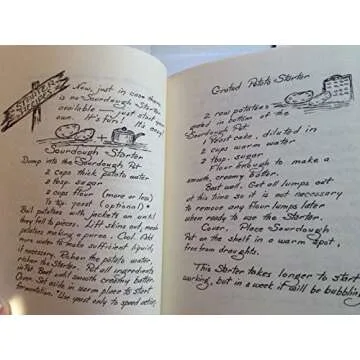 STARTER RECIPES
Now, just in case there
is no Sourdough Starter
available — just start your
own. It's fun! It's easy!
Sourdough Starter
Dump into the Sourdough Pot
2 cups thick potato water
2 tbsp. sugar
2 cups flour (more or less)
½ tsp. yeast (optional)*
Boil potatoes with jackets on until
they fall to pieces. Lift skins out, mash
potatoes making a puree. Cool. Add
more water to make sufficient liquid,
if necessary. Richer the potato water,
richer the Starter. Put all ingredients
in the Pot. Beat until smooth creamy batter.
Cover. Set aside in warm place to start
fermentation. *Use yeast only to speed action.
Grated Potato Starter
2 raw potatoes
grated in bottom of the
Sourdough Pot.
1 Yeast cake, diluted in
2 cups warm water
2 tbsp. sugar
Flour enough to make a
smooth, creamy batter.
Beat well. Get all lumps out
at this time so it is not necessary
to remove any flour lumps later
when ready to use the Starter.
Cover. Place Sourdough
Pot on the shelf in a warm spot,
free from draughts.
This Starter takes longer to start
working, but in a week it will be bubbling